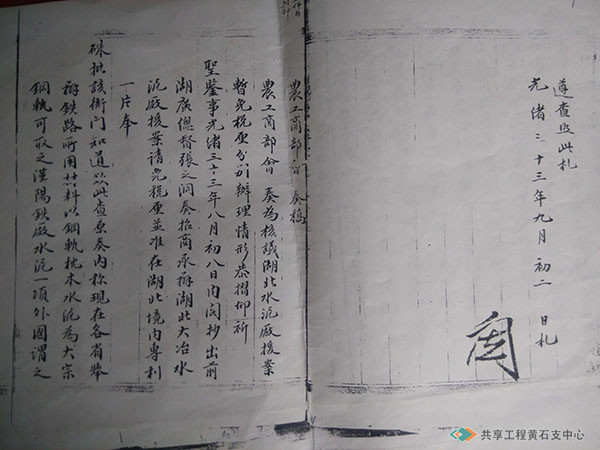 遵查照此札
光緒三十三年九月初二日札
農工商部會奏稿
農工商部會奏為核議湖北水泥廠援案
暫免稅厘分別辦理情形恭摺仰祈
聖鑒事光緒三十三年八月初八日內閣抄出前
湖廣總督張之洞奏招商承辦湖北大冶水
泥廠援案請免稅厘並准在湖北境內專利
一片奉
硃批該衙門知道欽此查原奏內稱現在各省舉
辦鐵路所用材料以鋼軌枕木水泥為大宗
鋼軌可取之漢陽鐵廠水泥一項外國謂之
共享工程黄石支中心